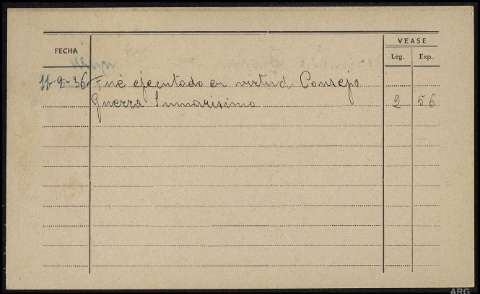 VEASE
FECHA Leg. Exp.
11-9-36 Fué ejecutado en virtud Consejo
Guerra Sumarisimo 2 56
ARG